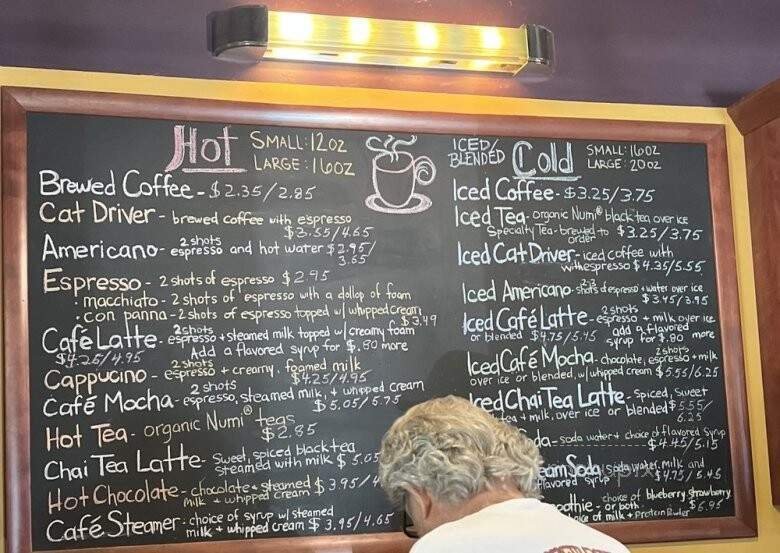 Hot SMALL: 12oz
LARGE: 16oz
Brewed Coffee - $2.35/2.85
Cat Driver - brewed coffee with espresso
$3.55/4.65
Americano - 2 shots espresso and hot water $2.95/
3.65
Espresso - 2 shots of espresso $2.95
· macchiato - 2 shots of espresso with a dollop of foam
· con panna - 2 shots of espresso topped w/ whipped cream
$3.49
Café Latte - 2 shots espresso + steamed milk topped w/ creamy foam
$4.25/4.95 Add a flavored syrup for $.80 more
Cappucino - 2 shots espresso + creamy, foamed milk
$4.25/4.95
Café Mocha - 2 shots espresso, steamed milk, + whipped cream
$5.05/5.75
Hot Tea - organic Numi® teas
$2.85
Chai Tea Latte - Sweet, spiced black tea
steamed with milk $5.0
Hot Chocolate - chocolate + steamed
milk + whipped cream $3.95/4
Café Steamer - choice of syrup w/ steamed
milk + whipped cream $3.95/4.65
ICED/
BLENDED Cold SMALL: 16oz
LARGE: 20oz
Iced Coffee - $3.25/3.75
Iced Tea - organic Numi® black tea over ice
Specialty Tea - brewed to order $3.25/3.75
Iced Cat Driver - iced coffee with
espresso $4.35/5.55
Iced Americano - 2-3 shots espresso + water over ice
$3.45/3.95
Iced Café Latte - 2 shots espresso + milk over ice
or blended $4.75/5.45 add a flavored
syrup for $.80 more
Iced Café Mocha - chocolate, 2 shots espresso + milk
over ice or blended, w/ whipped cream $5.55/6.25
Iced Chai Tea Latte - Spiced, Sweet
tea + milk, over ice or blended $5.55/
6.25
da - soda water + choice of flavored syrup
$4.45/5.15
eam Soda soda water, milk and
flavored syrup $4.75/5.45
oothie - choice of blueberry, strawberry,
or both $6.95
of milk + Protein Powder